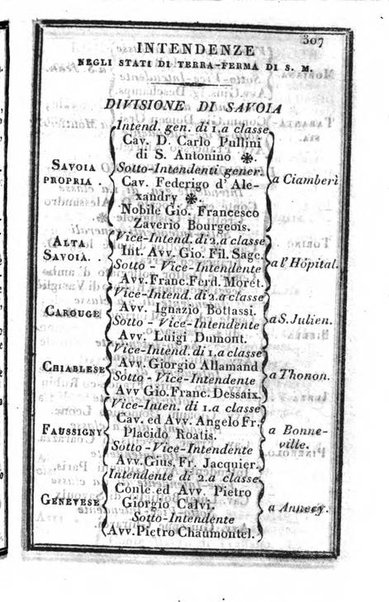 307
INTENDENZE
NEGLI STATI DI TERRA-FERMA DI S. M.
DIVISIONE DI SAVOIA
SAVOIA PROPRIA .
Intend. gen. di 1.a classe
Cav. D. Carlo Pullini
di S. Antonino ❋.
Sotto-Intendenti gener.
Cav. Federigo d'Ale-
xandry ❋.
Nobile Gio. Francesco
Zaverio Bourgeois.
a Ciamberì
ALTA SAVOIA . .
Vice-Intend. di 2.a classe
Int. Avv. Gio. Fil. Sage.
Sotto - Vice-Intendente
Avv. Franc. Ferd. Moret.
a l'Hôpital.
CAROUGE
Vice-Intend. di 2.a classe
Avv. Ignazio Bottassi.
Sotto - Vice-Intendente
Avv. Luigi Dumont.
a S. Julien.
CHIABLESE
Vice-Intend. di 1.a classe
Avv. Giorgio Allamand
Sotto - Vice-Intendente
Avv Gio. Franc. Dessaix.
a Thonon.
FAUSSIGNY
Vice-Inten. di 1.a classe
Cav. ed Avv. Angelo Fr.
Placido Roatis.
Sotto-Vice-Intendente
Avv. Gius. Fr. Jacquier.
a Bonne-
ville.
GENEVESE
Intendente di 2.a classe
Conte ed Avv. Pietro
Giorgio Calvi.
Sotto-Intendente
Avv. Pietro Chaumontel.
a Annecy.